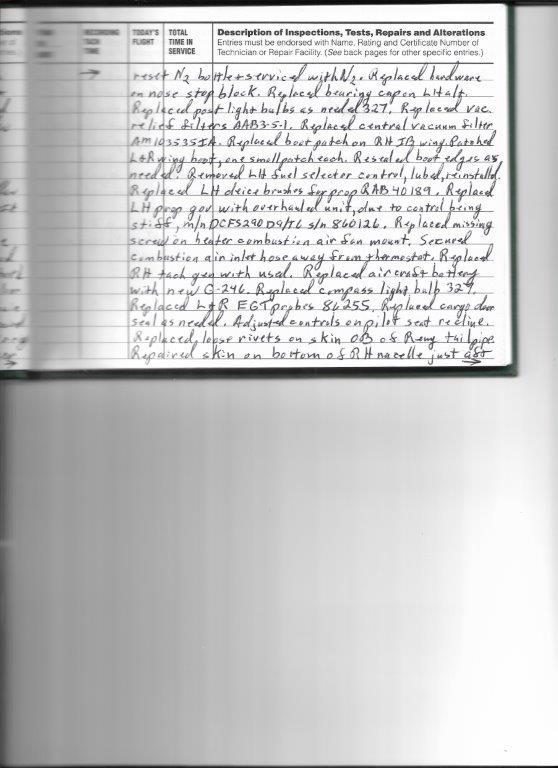 RECORDING TACH TIME
TODAY'S FLIGHT
TOTAL TIME IN SERVICE
Description of Inspections, Tests, Repairs and Alterations
Entries must be endorsed with Name, Rating and Certificate Number of
Technician or Repair Facility. (See back pages for other specific entries.)
→ reset N2 bottle + serviced with N2. Replaced hardware
on nose stop block. Replaced bearing cap on LH alt.
Replaced post light bulbs as needed 327. Replaced vac.
relief filters AAB3-5-1. Replaced central vacuum filter
AM103535IA. Replaced boot patch on RH IB wing. Patched
L+R wing boot, one small patch each. Resealed boot edges as
needed. Removed LH fuel selector control, lubed, reinstalld.
Replaced LH deice brushes for prop RAB40189. Replaced
LH prop gov with overhauled unit, due to control being
stiff, m/n DCFS290D9/T6 s/n 860126. Replaced missing
screw on heater combustion air fan mount. Secured
combustion air inlet hose away from thermostat. Replaced
RH tach gen with used. Replaced aircraft battery
with new G-246. Replaced compass light bulb 327.
Replaced L+R EGT probes 86255. Replaced cargo door
seal as needed. Adjusted controls on pilot seat recline.
Replaced loose rivets on skin OB of R eng tail pipe
Repaired skin on bottom of RH nacelle just aft →